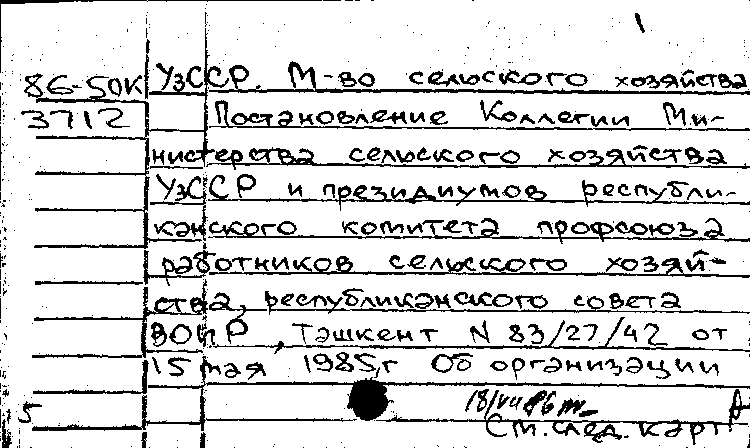 1
86-50К УзССР. М-во сельского хозяйства
3712 Постановление Коллегии Ми-
нистерства сельского хозяйства
УзССР и президиумов республи-
канского комитета профсоюза
работников сельского хозяй-
ства, республиканского совета
ВОИР, Ташкент N 83/27/42 от
15 мая 1985г Об организации
5
См. след. карт